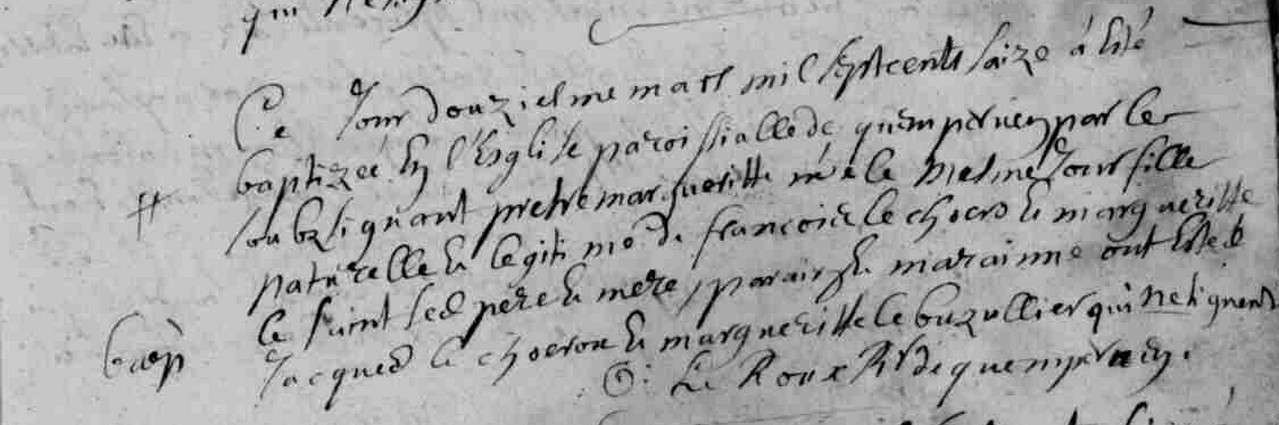 Ce Jour douziesme mars mil septcents saize á Esté
baptizeé En l'Esglise paroissialle de quimperven par le
soubzsignant pretre margueritte neé le mesme Jour fille
naturelle Et legitime de francois le choero Et margueritte
le saint sed pere Et mere, parain Et maraine ont Esté
bap Jacques le choeron Et margueritte le buzullier qui ne signent
G: Le Roux Rr de quemperven.